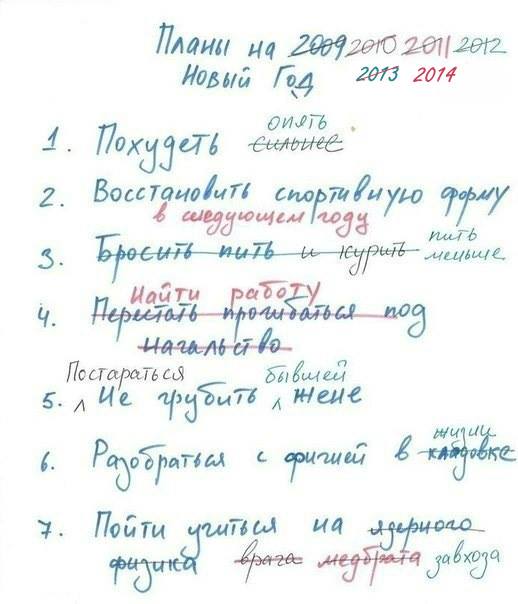 Планы на 2009 2010 2011 2012
Новый Год 2013 2014
опять
1. Похудеть сильнее
2. Восстановить спортивную форму
в следующем году
пить
3. Бросить пить и курить меньше
Найти работу
4. Перестать прогибаться под
начальство
Постараться бывшей
5. Не грубить жене
жизни
6. Разобраться с фигнёй в кладовке
7. Пойти учиться на ядерного
физика врача медбрата завхоза